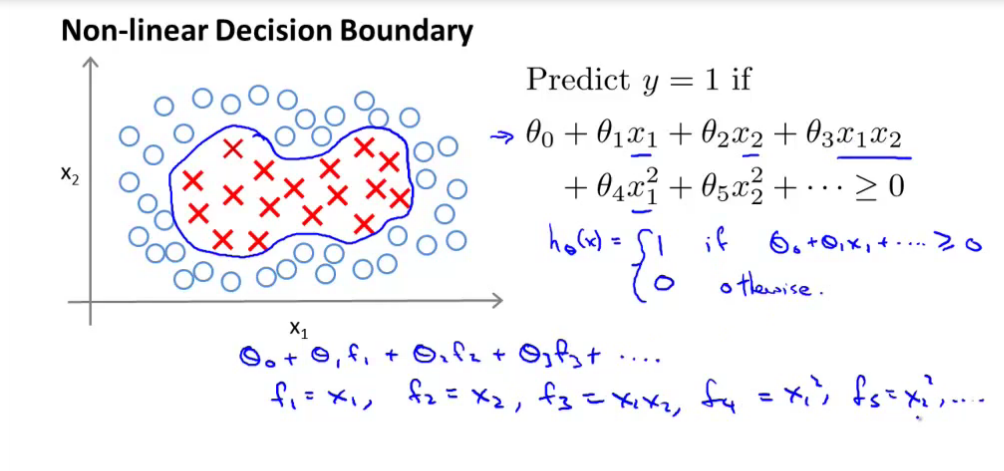 Non-linear Decision Boundary
x₂
x₁
Predict y = 1 if
→ θ₀ + θ₁x₁ + θ₂x₂ + θ₃x₁x₂
+ θ₄x₁² + θ₅x₂² + ⋯ ≥ 0
h_θ(x) = { 1 if θ₀+θ₁x₁+.... ≥ 0
0 otherwise.
θ₀ + θ₁f₁ + θ₂f₂ + θ₃f₃ + ....
f₁ = x₁, f₂ = x₂, f₃ = x₁x₂, f₄ = x₁², f₅ = x₂², ....